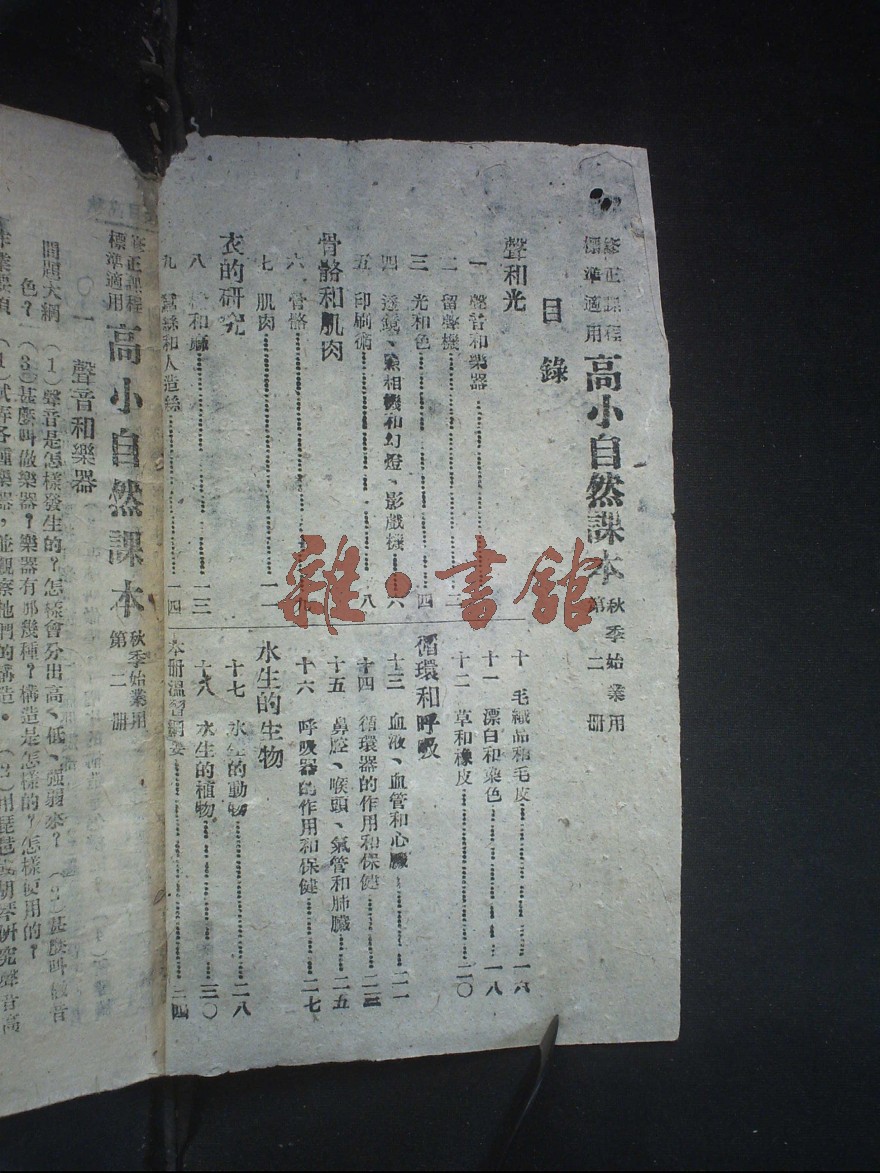 修正課程
標準適用
高小自然課本
秋季始業用
第二冊
目錄
聲和光
一 聲音和樂器
二 留聲機
三 光和色 四
四 透鏡、照相機和幻燈、影戲機 六
五 印刷術 八
骨骼和肌肉
六 骨骼
七 肌肉 一一
衣的研究
八 和麻 一三
九 蠶絲和人造絲 一四
十 毛織品和毛皮 一六
十一 漂白和染色 一八
十二 草和橡皮 二〇
循環和呼吸
十三 血液、血管和心臟 二一
十四 循環器的作用和保健 二三
十五 鼻腔、喉頭、氣管和肺臟 二五
十六 呼吸器的作用和保健 二七
水生的生物
十七 水生的動物 二八
十八 水生的植物 三〇
本册溫習綱要
雜·書館
修正課程
標準適用
高小自然課本
秋季始業用
第二冊
一 聲音和樂器
問題大綱 (1)聲音是怎樣發生的？怎樣會分出高、低、強弱來？(2)甚麼叫做音
色？(3)甚麼叫做樂器？樂器有那幾種？構造是怎樣的？怎樣使用的？
作業要項 (1)試弄各種樂器，並觀察牠們的構造。(2)用琵琶或胡琴研究聲音高